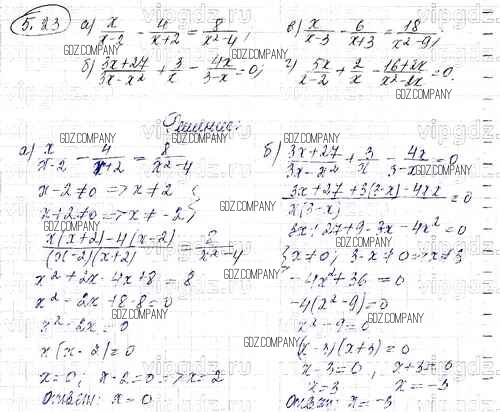 5.23 а) x/(x-2) - 4/(x+2) = 8/(x²-4); в) x/(x-3) - 6/(x+3) = 18/(x²-9);
б) (3x+27)/(3x-x²) + 3/x - 4x/(3-x) = 0; г) 5x/(x-2) + 2/x - (16+2x)/(x²-2x) = 0.
Решение:
а) x/(x-2) - 4/(x+2) = 8/(x²-4)
x-2≠0 => x≠2
x+2≠0 => x≠-2
(x(x+2)-4(x-2))/((x-2)(x+2)) = 8/(x²-4)
x²+2x-4x+8=8
x²-2x+8-8=0
x²-2x=0
x(x-2)=0
x=0; x-2=0 => x=2
Ответ: x=0
б) (3x+27)/(3x-x²) + 3/x - 4x/(3-x) = 0
(3x+27+3(3-x)-4x·x)/(x(3-x)) = 0
3x+27+9-3x-4x²=0
{x≠0; 3-x≠0 => x≠3
-4x²+36=0
-4(x²-9)=0
x²-9=0
(x-3)(x+3)=0
x-3=0; x+3=0
x=3 x=-3
Ответ: x=-3
GDZ.COMPANY
vipgdz.ru